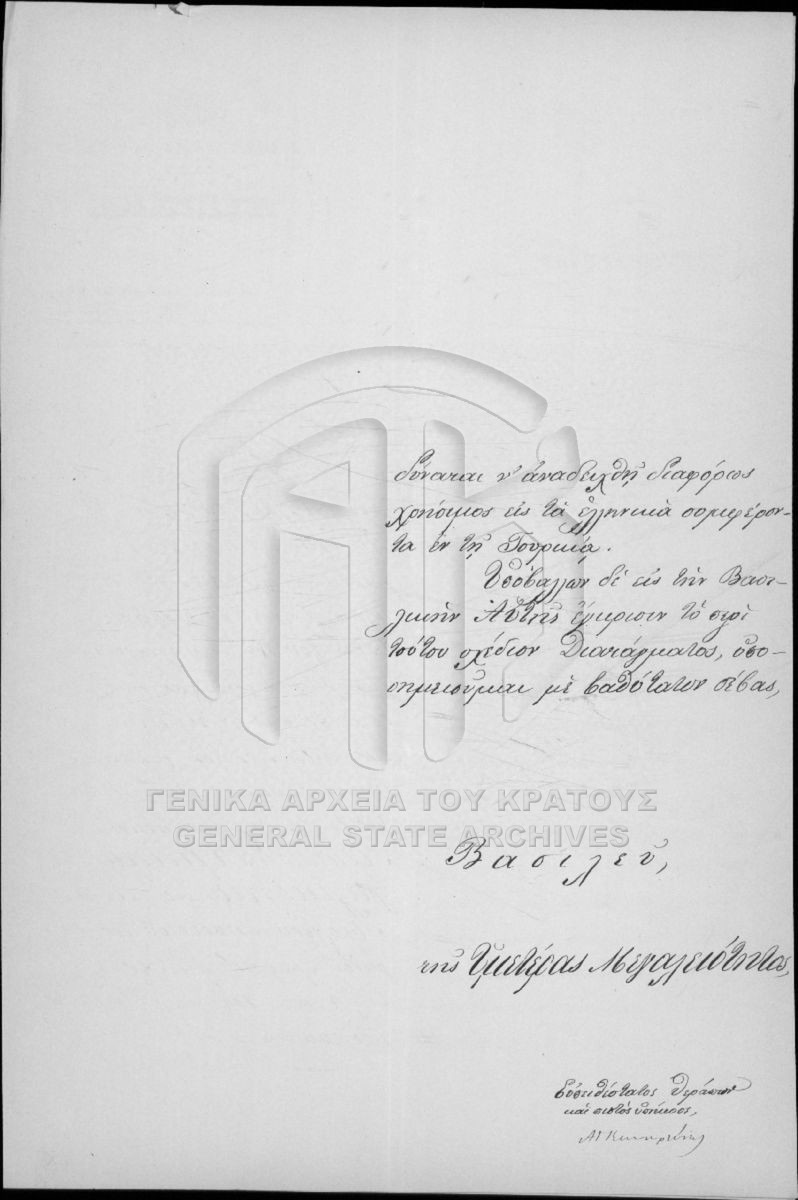 δύναται ν' ἀναδειχθῇ διαφόρως
χρήσιμος εἰς τὰ ἑλληνικὰ συμφέρον-
τα ἐν τῇ Τουρκίᾳ.
Ὑποβάλλων δὲ εἰς τὴν Βασι-
λικὴν Αὐτῆς ἔγκρισιν τὸ περὶ
τούτου σχέδιον Διατάγματος, ὑπο-
σημειοῦμαι μὲ βαθύτατον σέβας,
ΓΕΝΙΚΑ ΑΡΧΕΙΑ ΤΟΥ ΚΡΑΤΟΥΣ
GENERAL STATE ARCHIVES
Βασιλεῦ,
τῆς Ὑμετέρας Μεγαλειότητος,
Εὐπειθέστατος θεράπων
καὶ πιστὸς ὑπήκοος,